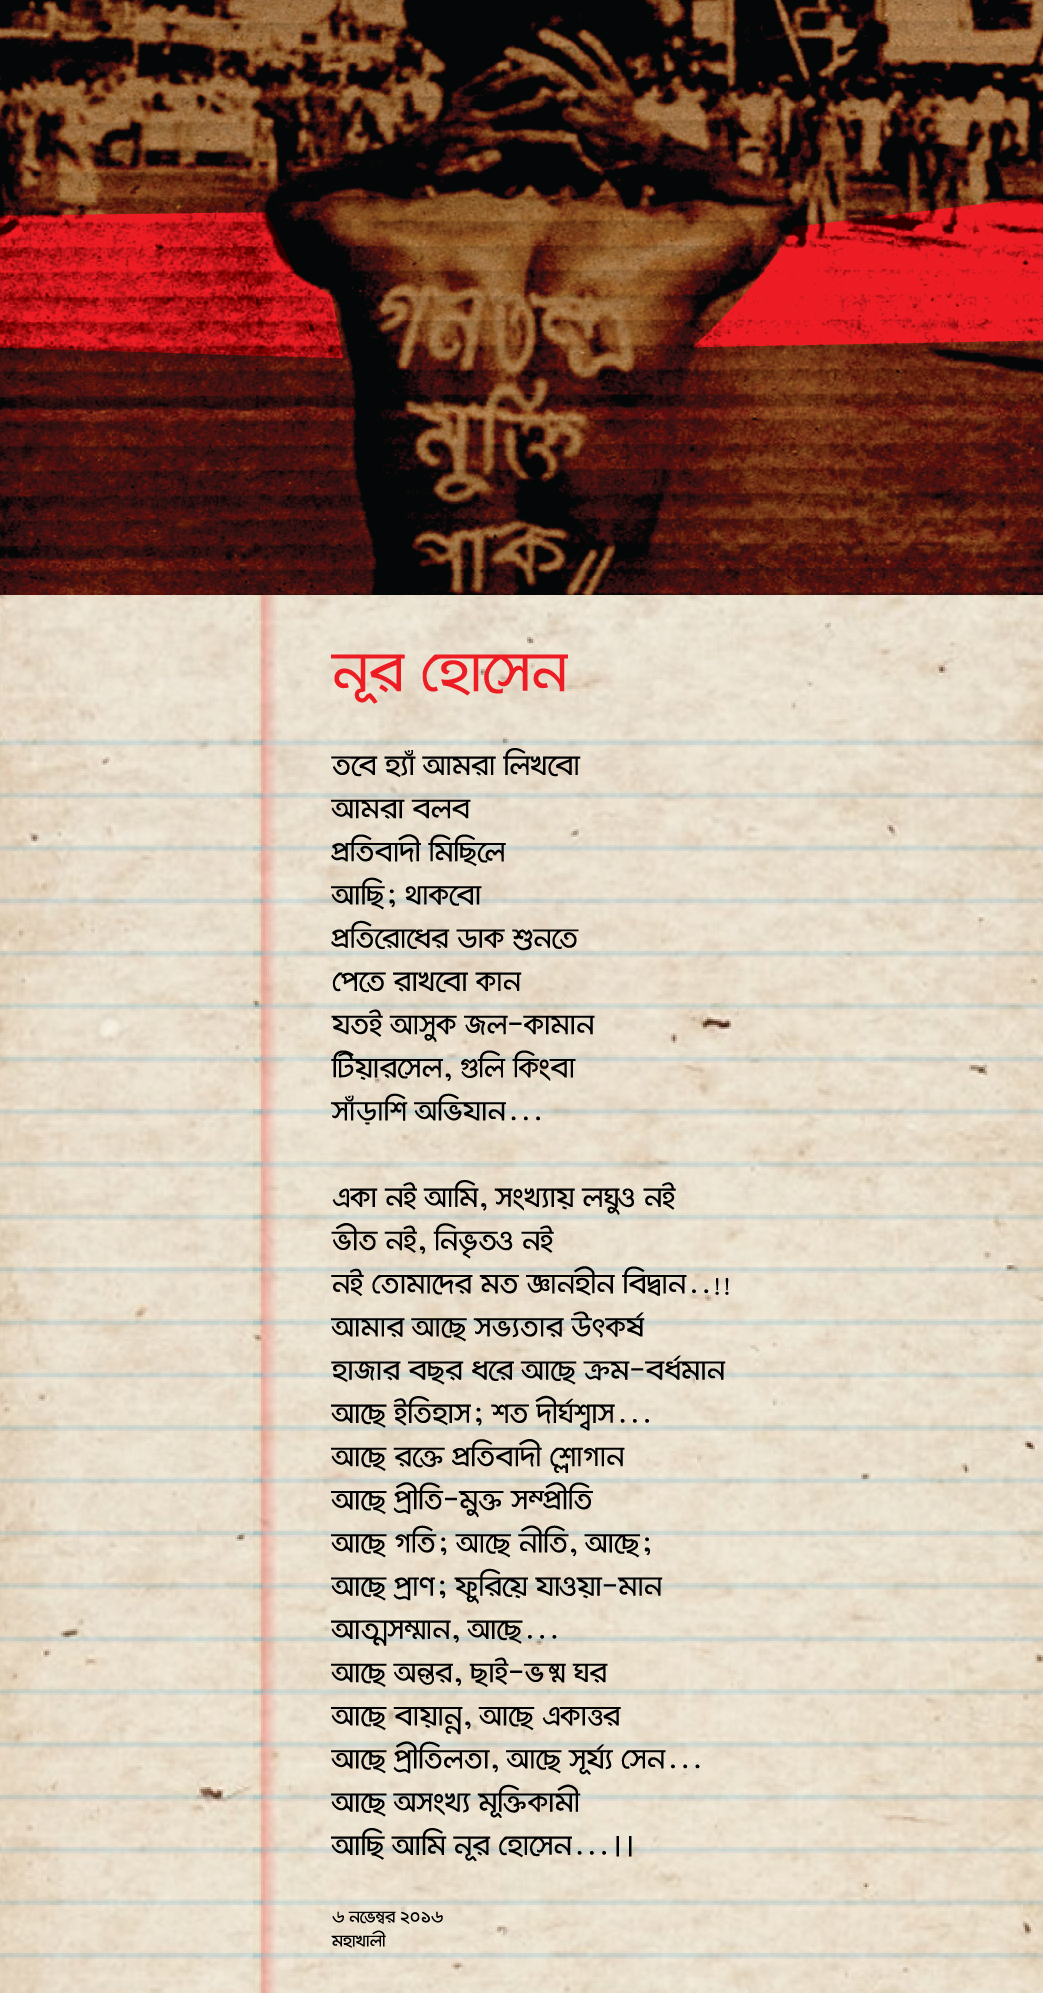 গনতন্ত্র
মুক্তি
পাক//
নূর হোসেন
তবে হ্যাঁ আমরা লিখবো
আমরা বলব
প্রতিবাদী মিছিলে
আছি; থাকবো
প্রতিরোধের ডাক শুনতে
পেতে রাখবো কান
যতই আসুক জল-কামান
টিয়ারসেল, গুলি কিংবা
সাঁড়াশি অভিযান...
একা নই আমি, সংখ্যায় লঘুও নই
ভীত নই, নিভৃতও নই
নই তোমাদের মত জ্ঞানহীন বিদ্বান..!!
আমার আছে সভ্যতার উৎকর্ষ
হাজার বছর ধরে আছে ক্রম-বর্ধমান
আছে ইতিহাস; শত দীর্ঘশ্বাস...
আছে রক্তে প্রতিবাদী শ্লোগান
আছে প্রীতি-মুক্ত সম্প্রীতি
আছে গতি; আছে নীতি, আছে;
আছে প্রাণ; ফুরিয়ে যাওয়া-মান
আত্মসম্মান, আছে...
আছে অন্তর, ছাই-ভষ্ম ঘর
আছে বায়ান্ন, আছে একাত্তর
আছে প্রীতিলতা, আছে সূর্য্য সেন...
আছে অসংখ্য মূক্তিকামী
আছি আমি নূর হোসেন...।।
৬ নভেম্বর ২০১৬
মহাখালী